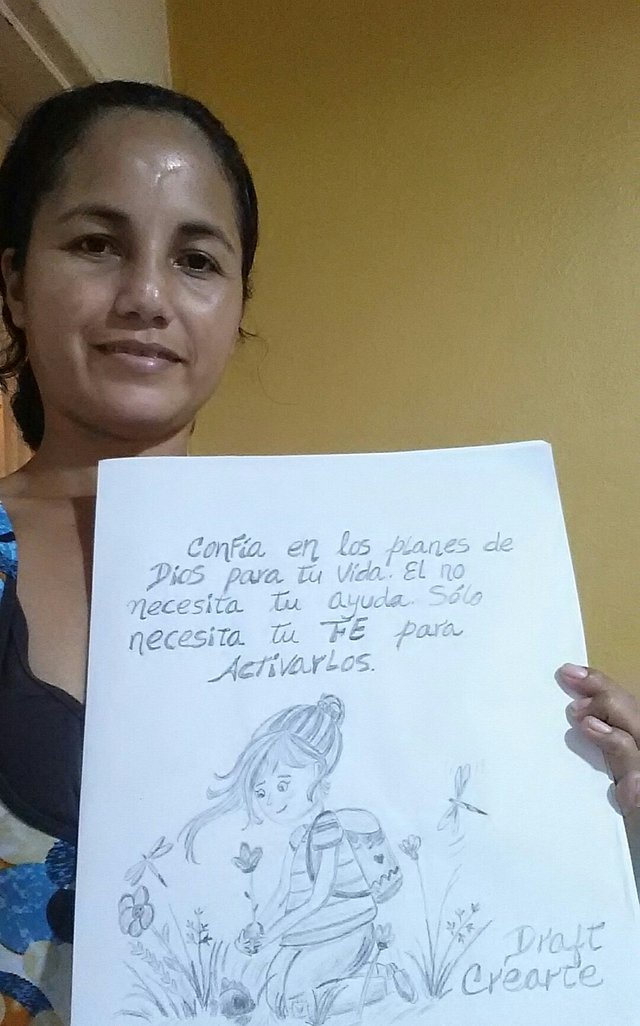 Confía en los planes de
Dios para tu vida. El no
necesita tu ayuda. Sólo
necesita tu FE para
Activarlos.
Draft
Crearte